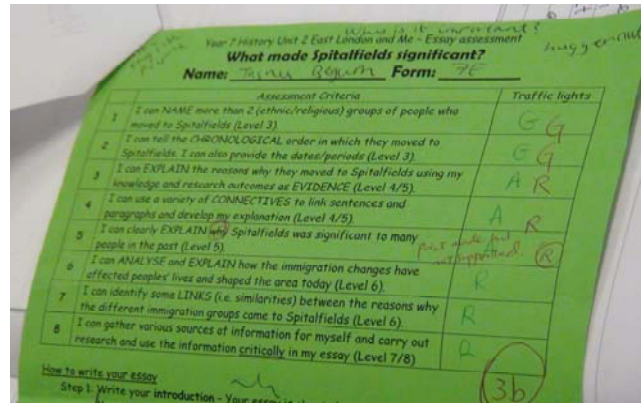 Why is it important?
Year 7 History Unit 2 East London and Me - Essay assessment
What made Spitalfields significant?
Name: Begum Form: 7E
Assessment Criteria Traffic lights
1 I can NAME more than 2 (ethnic/religious) groups of people who
moved to Spitalfields (Level 3). G G
2 I can tell the CHRONOLOGICAL order in which they moved to
Spitalfields. I can also provide the dates/periods (Level 3). G G
3 I can EXPLAIN the reasons why they moved to Spitalfields using my
knowledge and research outcomes as EVIDENCE (Level 4/5). A R
4 I can use a variety of CONNECTIVES to link sentences and
paragraphs and develop my explanation (Level 4/5). A R
5 I can clearly EXPLAIN why Spitalfields was significant to many
people in the past (Level 5). Point made but
not supported. R
6 I can ANALYSE and EXPLAIN how the immigration changes have
affected peoples' lives and shaped the area today (Level 6). R
7 I can identify some LINKS (i.e. similarities) between the reasons why
the different immigration groups came to Spitalfields (Level 6). R
8 I can gather various sources of information for myself and carry out
research and use the information critically in my essay (Level 7/8) R
3b
How to write your essay
Step 1: Write your introduction - Your essay